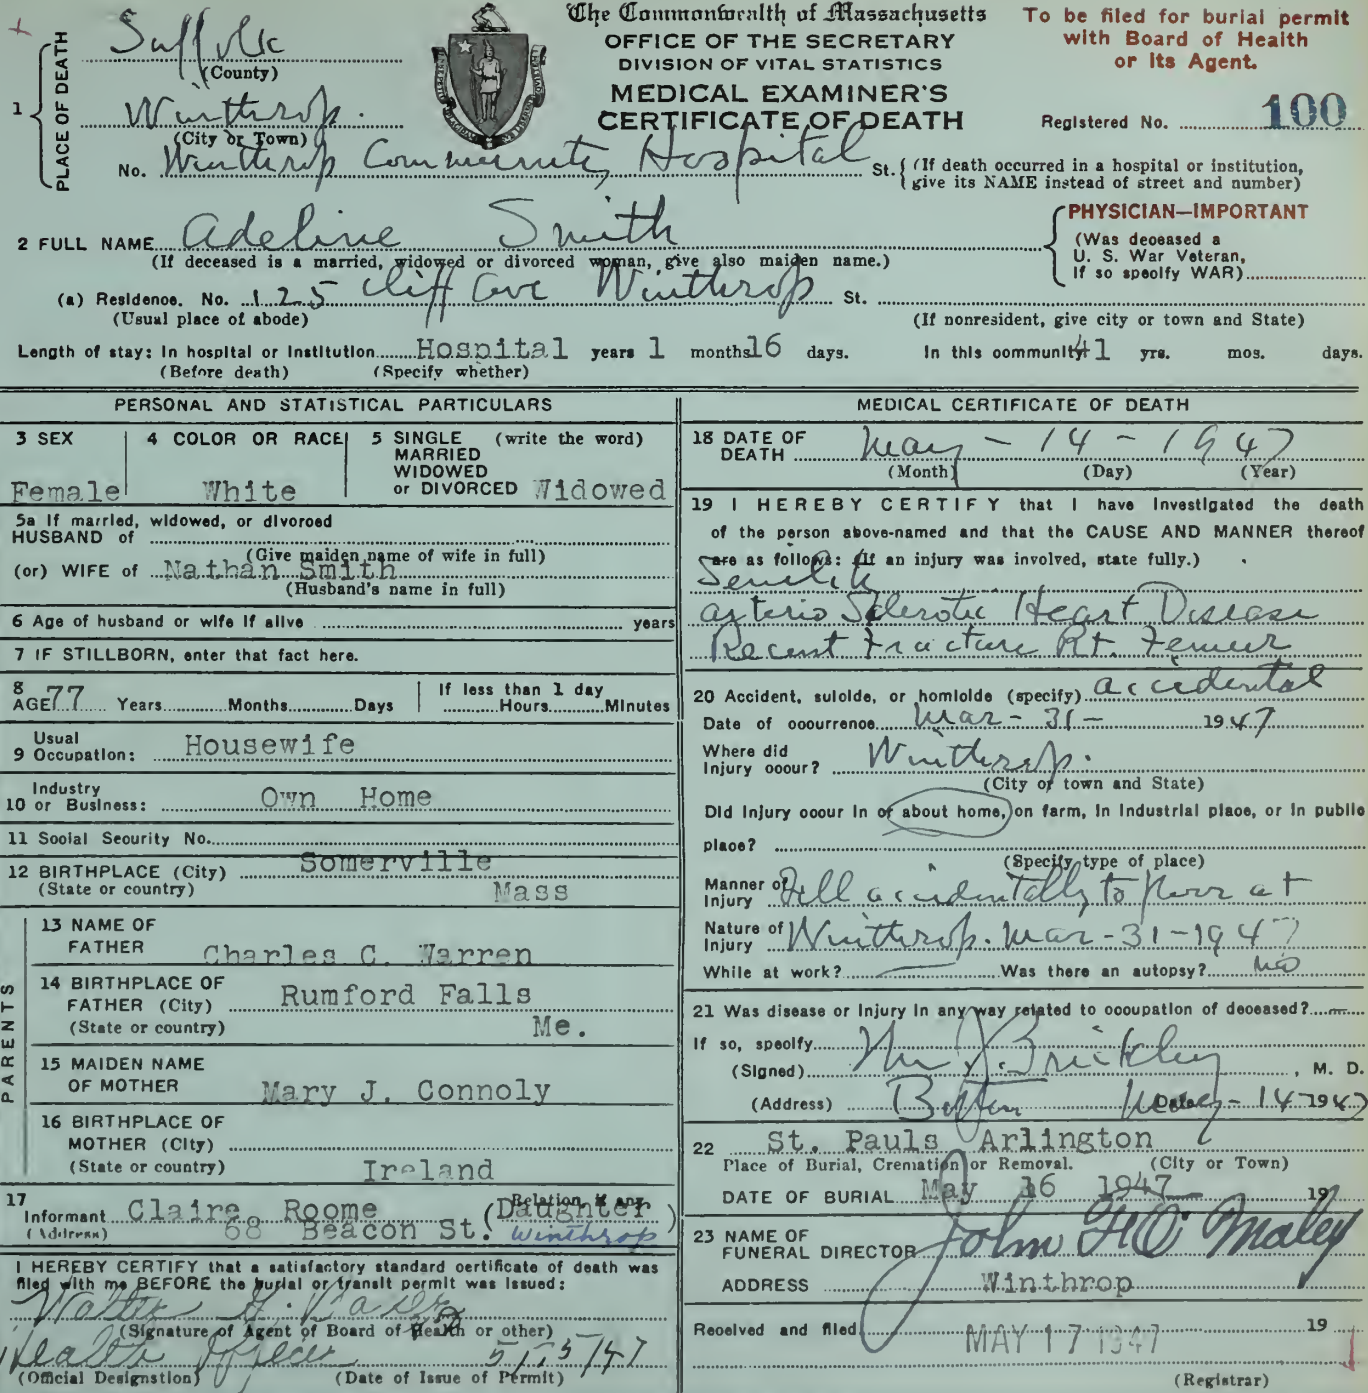 The Commonwealth of Massachusetts
OFFICE OF THE SECRETARY
DIVISION OF VITAL STATISTICS
MEDICAL EXAMINER'S
CERTIFICATE OF DEATH
To be filed for burial permit
with Board of Health
or its Agent.
Registered No. 100
1 PLACE OF DEATH
Suffolk
(County)
Winthrop.
(City or Town)
No. Winthrop Community Hospital St. (If death occurred in a hospital or institution,
give its NAME instead of street and number)
2 FULL NAME Adeline Smith
(If deceased is a married, widowed or divorced woman, give also maiden name.)
PHYSICIAN—IMPORTANT
(Was deceased a
U. S. War Veteran,
If so specify WAR)
(a) Residence. No. 125 Cliff Ave Winthrop St.
(Usual place of abode)
(If nonresident, give city or town and State)
Length of stay: In hospital or Institution Hospital years 1 months 16 days. In this community 41 yrs. mos. days.
(Before death) (Specify whether)
PERSONAL AND STATISTICAL PARTICULARS
3 SEX
Female
4 COLOR OR RACE
White
5 SINGLE (write the word)
MARRIED
WIDOWED
or DIVORCED Widowed
5a If married, widowed, or divorced
HUSBAND of
(Give maiden name of wife in full)
(or) WIFE of Nathan Smith
(Husband's name in full)
6 Age of husband or wife if alive years
7 IF STILLBORN, enter that fact here.
8 AGE 77 Years Months Days
If less than 1 day
Hours Minutes
9 Usual Occupation: Housewife
10 Industry or Business: Own Home
11 Social Security No.
12 BIRTHPLACE (City) Somerville
(State or country) Mass
PARENTS
13 NAME OF
FATHER Charles C. Warren
14 BIRTHPLACE OF
FATHER (City) Rumford Falls
(State or country) Me.
15 MAIDEN NAME
OF MOTHER Mary J. Connoly
16 BIRTHPLACE OF
MOTHER (City)
(State or country) Ireland
17 Informant Claire Roome (Daughter)
Relation, if any
(Address) 68 Beacon St. Winthrop
I HEREBY CERTIFY that a satisfactory standard certificate of death was
filed with me BEFORE the burial or transit permit was issued:
Walter
(Signature of Agent of Board of Health or other)
Health Officer 5/15/47
(Official Designation) (Date of Issue of Permit)
MEDICAL CERTIFICATE OF DEATH
18 DATE OF
DEATH May - 14 - 1947
(Month) (Day) (Year)
19 I HEREBY CERTIFY that I have investigated the death
of the person above-named and that the CAUSE AND MANNER thereof
are as follows: (If an injury was involved, state fully.)
Senility
Arterio Sclerotic Heart Disease
Recent Fracture Rt. Femur
20 Accident, suicide, or homicide (specify) accidental
Date of occurrence Mar - 31 - 1947
Where did
Injury occur? Winthrop.
(City or town and State)
Did injury occur in or about home, on farm, in industrial place, or in public
place?
(Specify type of place)
Manner of
Injury Fell accidentally to floor at
Nature of
Injury Winthrop. Mar - 31 - 1947
While at work? Was there an autopsy? no
21 Was disease or injury in any way related to occupation of deceased?
If so, specify
(Signed) Wm J. Brickley, M. D.
(Address) Boston Date May - 14 1947
22 St. Pauls Arlington
Place of Burial, Cremation or Removal. (City or Town)
DATE OF BURIAL May 16 1947 19
23 NAME OF
FUNERAL DIRECTOR John F. O'Maley
ADDRESS Winthrop
Received and filed MAY 17 1947 19
(Registrar)